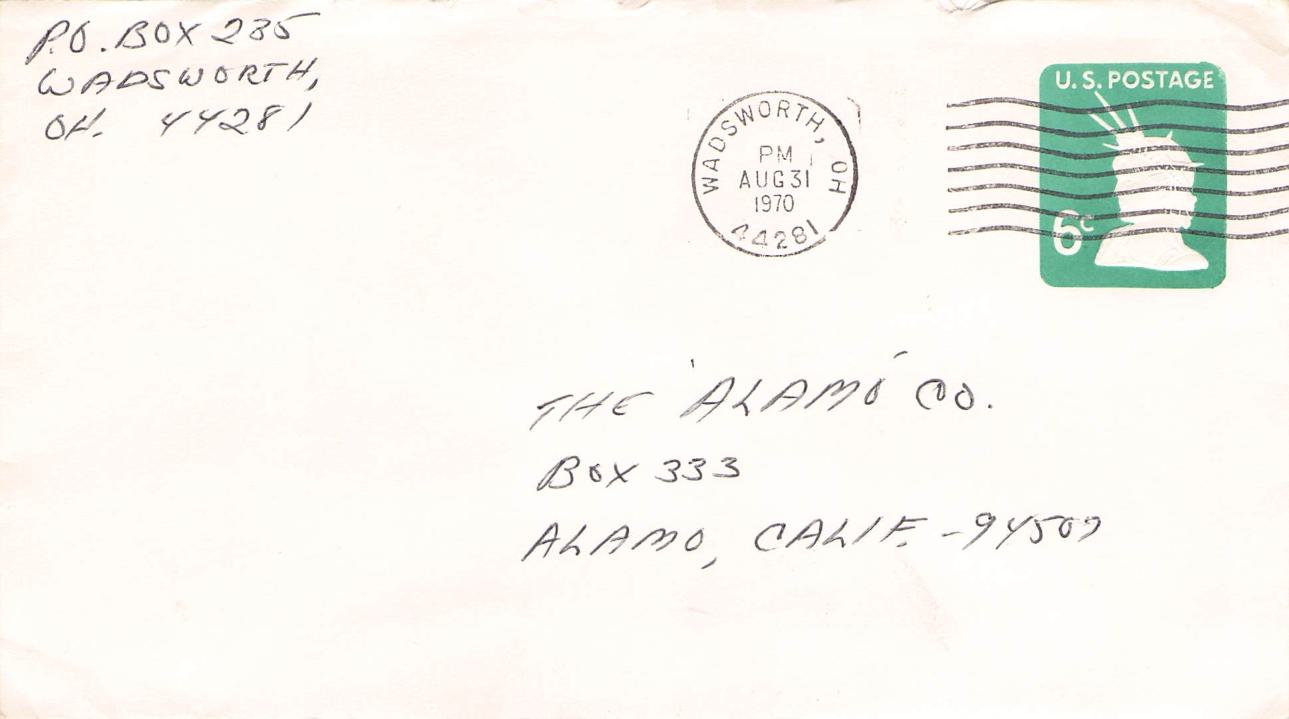 P.O. BOX 235
WADSWORTH,
OH. 44281
WADSWORTH, OH
PM
AUG 31
1970
44281
U.S. POSTAGE
6c
THE "ALAMO" CO.
BOX 333
ALAMO, CALIF. - 94507